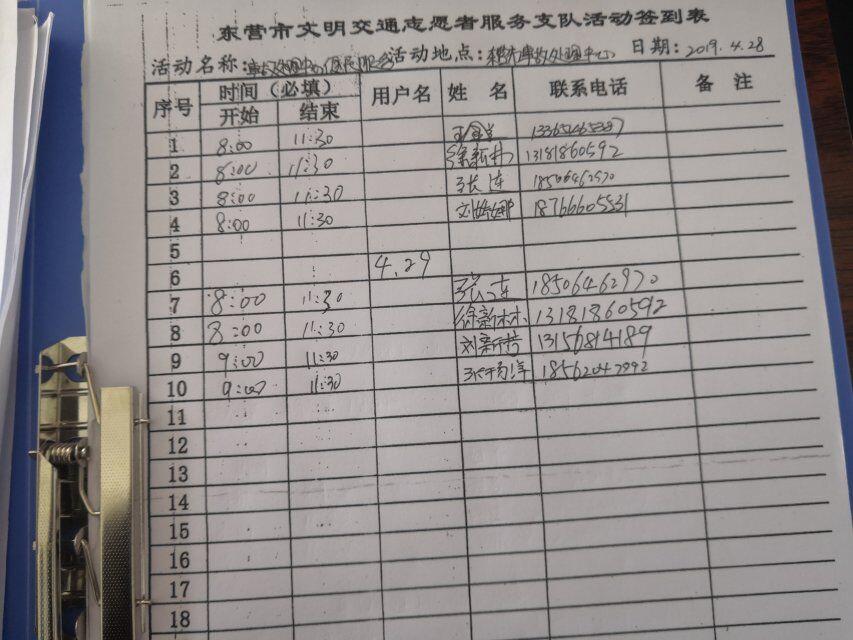 东营市文明交通志愿者服务支队活动签到表
活动名称: 活动地点: 事故处理中心 日期: 2019.4.28
序号 时间（必填） 用户名 姓 名 联系电话 备 注
开始 结束
1 8:00 11:30
2 8:00 11:30 徐新林 13181860592
3 8:00 11:30 张连
4 8:00 11:30 刘娜 18766605531
5
6 4.29
7 8:00 11:30 张连 18506462970
8 8:00 11:30 徐新林 13181860592
9 9:00 11:30 刘新 13156814189
10 9:00 11:30
11
12
13
14
15
16
17
18